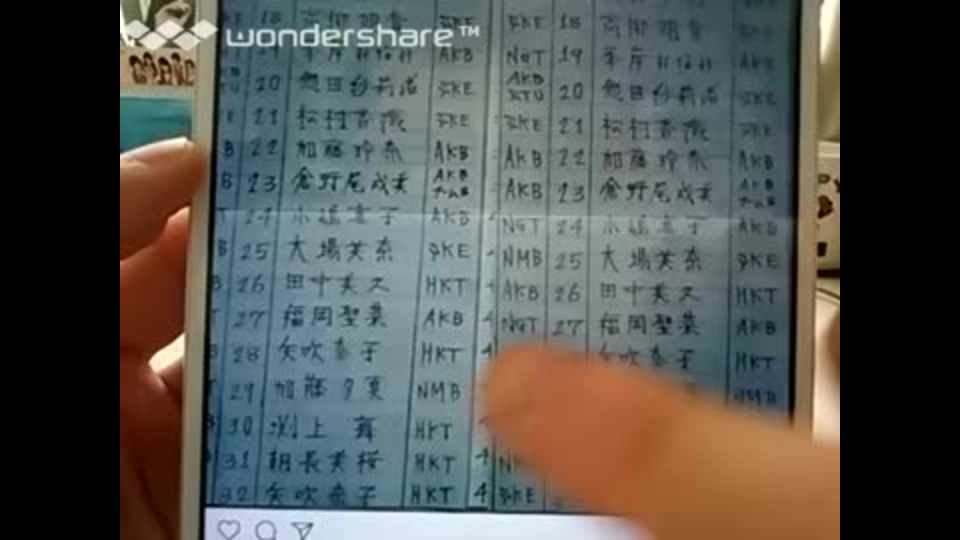 wondershare™
KE 18 SKE SKE 18
AKB NGT 19 AKB
20 惣田紗莉渚 SKE AKB STU 20 惣田紗莉渚 SKE
E 21 松村香織 SKE SKE 21 松村香織 SKE
B 22 加藤玲奈 AKB AKB 22 加藤玲奈 AKB
B 23 倉野尾成美 AKB チーム8 AKB 23 倉野尾成美 AKB チーム8
T 24 小嶋真子 AKB NGT 24 小嶋真子 AKB
B 25 大場美奈 SKE NMB 25 大場美奈 SKE
B 26 田中美久 HKT 4 AKB 26 田中美久 HKT
T 27 福岡聖菜 AKB 4 NGT 27 福岡聖菜 AKB
B 28 矢吹奈子 HKT 4 矢吹奈子 HKT
T 29 加藤夕夏 NMB NMB
30 渕上 舞 HKT
31 朝長美桜 HKT 4
32 矢吹奈子 HKT 4 SKE